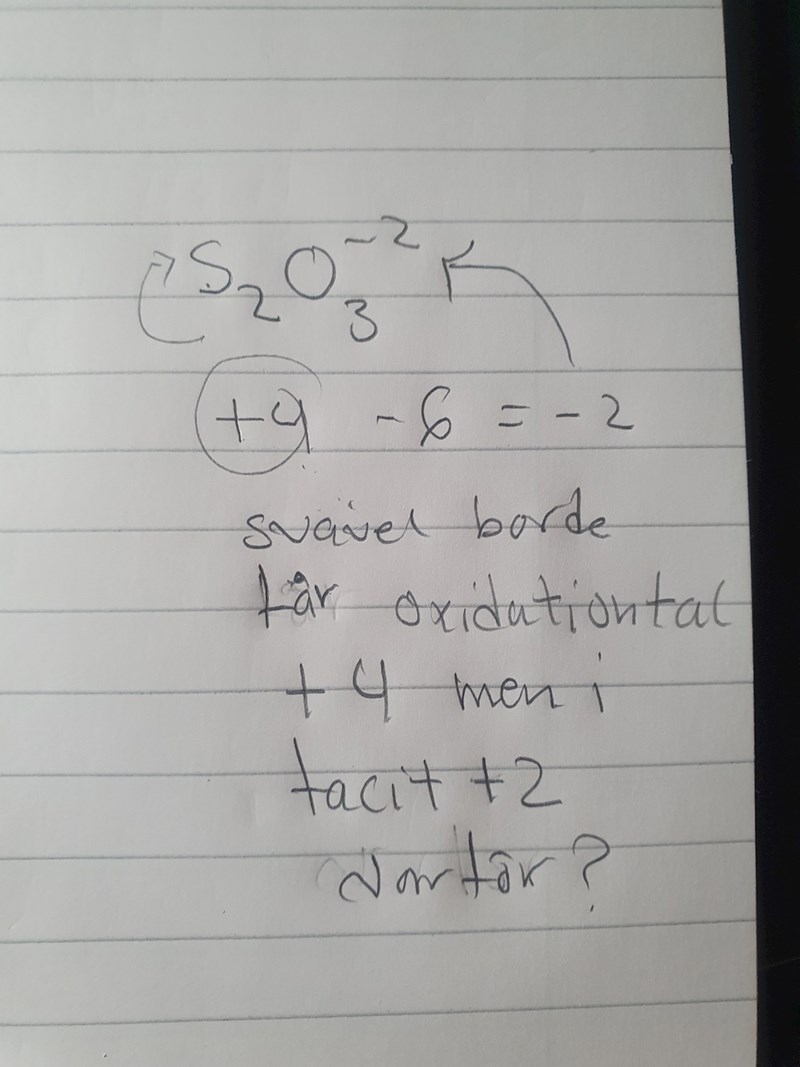 S₂O₃⁻²
+4 - 6 = - 2
svavel borde
får oxidationtal
+4 men i
facit +2
varför?